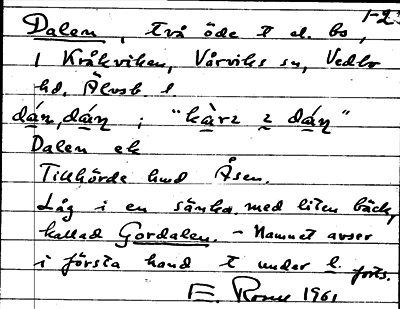 1-2
Dalen, två öde t el. bo,
i Kråkviken, Vårviks sn, Vedbo
hd, Älvsb l.
dán, dán ; "kàrz z dán"
Dalen ek
Tillhörde hmd Åsen.
Låg i en sänka med liten bäck,
kallad Gordalen. - Namnet avser
i första hand t under l. forts.
E. Rome 1961